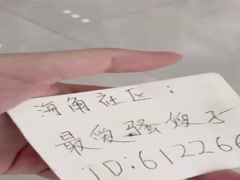 海角社区：
最爱骚嫂子
ID:612266